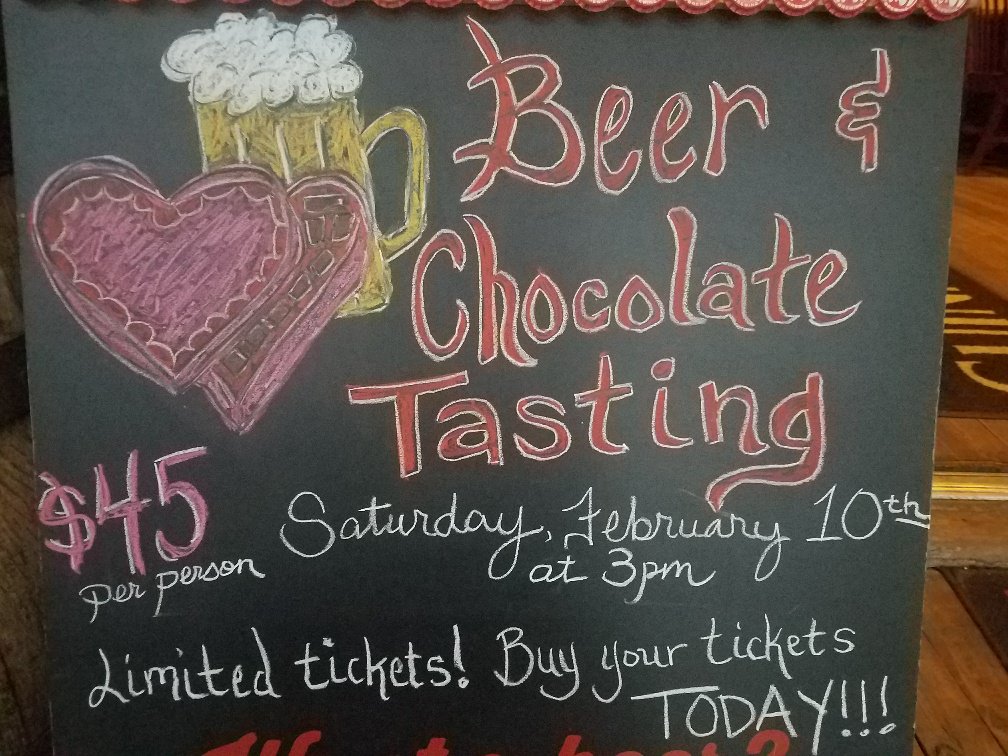 Beer &
Chocolate
Tasting
$45
per person
Saturday, February 10th
at 3pm
Limited tickets! Buy your tickets
TODAY!!!